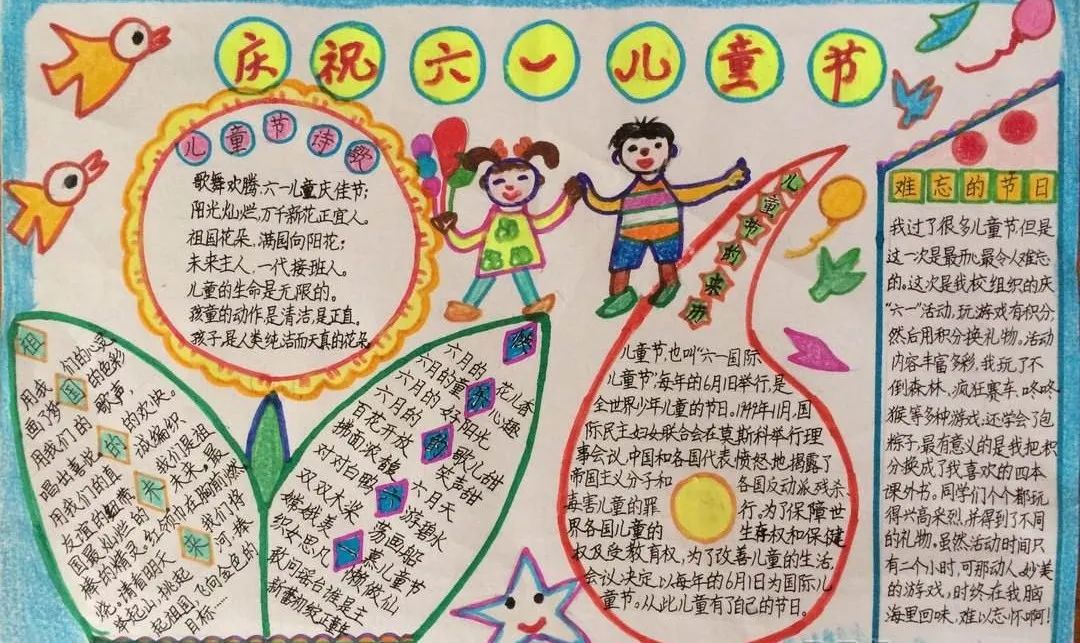 庆祝六一儿童节
儿童节诗歌
歌舞欢腾,六一儿童庆佳节;
阳光灿烂,万千新花正宜人。
祖国花朵,满园向阳花;
未来主人,一代接班人。
儿童的生命是无限的。
孩童的动作是清洁,是正直。
孩子,是人类纯洁而天真的花朵
祖国的未来
用我们的心灵
画了好 的色彩
用我们的 歌声,
唱出喜悦 的欢快。
用我们的 编织
友谊的 我们是祖
国最灿烂的 未来。最
棒的精灵。红领巾在胸前燃
烧。清清明天 我们将
举起山,挑起 可捧
起祖国,飞向金色的
目标……
六月的 花儿香
六月的 心趣
六月的 好阳光
百花开放 歌儿甜
拂面波馥 笑声甜
对对白鸥 六月天
双双木桨 游碧水
嫦娥羞 荡画船
织女思凡 慕儿童节
敢问瑶台谁是主 懒做仙
儿童节的来历
儿童节,也叫“六一国际
儿童节”,每年的6月1日举行,是
全世界少年儿童的节日。1949年11月,国
际民主妇女联合会在莫斯科举行理
事会议,中国和各国代表愤怒地揭露了
帝国主义分子和 各国反动派残杀、
毒害儿童的罪 行。为了保障世
界各国儿童的 生存权和保健
权及受教育权,为了改善儿童的生活,
会议决定以每年的6月1日为国际儿
童节。从此儿童有了自己的节日。
难忘的节日
我过了很多儿童节,但是
这一次是最开心最令人难忘
的。这次是我校组织的庆
“六一”活动,玩游戏有积分,
然后用积分换礼物。活动
内容丰富多彩,我玩了不
倒森林、疯狂赛车、咚咚
猴等多种游戏,还学会了包
粽子,最有意义的是我把积
分换成了我喜欢的四本
课外书。同学们个个都玩
得兴高采烈,并得到了不同
的礼物。虽然活动时间只
有二个小时,可那动人、妙美
的游戏,时终在我脑
海里回味,难以忘怀啊!